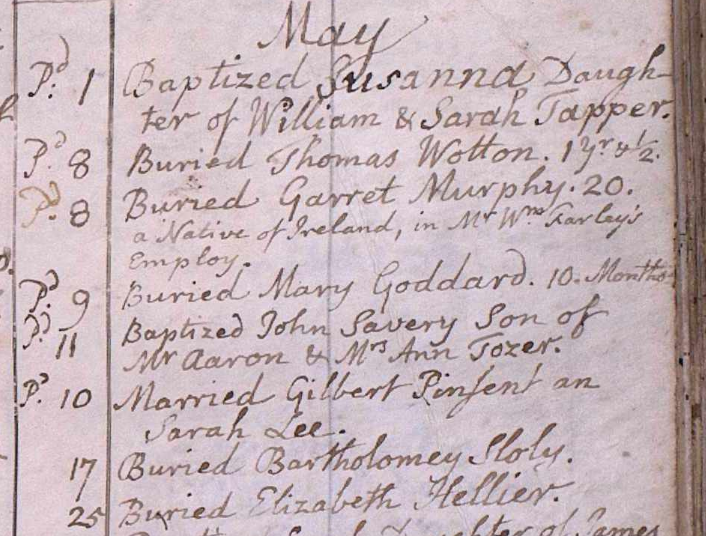 May
Pd 1 Baptized Susanna Daugh-
ter of William & Sarah Tapper.
Pd 8 Buried Thomas Wotton. 1 yr & 1/2.
Pd 8 Buried Garret Murphy. 20.
a Native of Ireland, in Mr Wm Farley's
Employ.
Pd 9 Buried Mary Goddard. 10. Months
Pd 11 Baptized John Savery Son of
Mr Aaron & Mrs Ann Tozer.
Pd 10 Married Gilbert Pinsent an
Sarah Lee.
17 Buried Bartholomey Sloly.
25 Buried Elizabeth Hellier.
Daughter of James